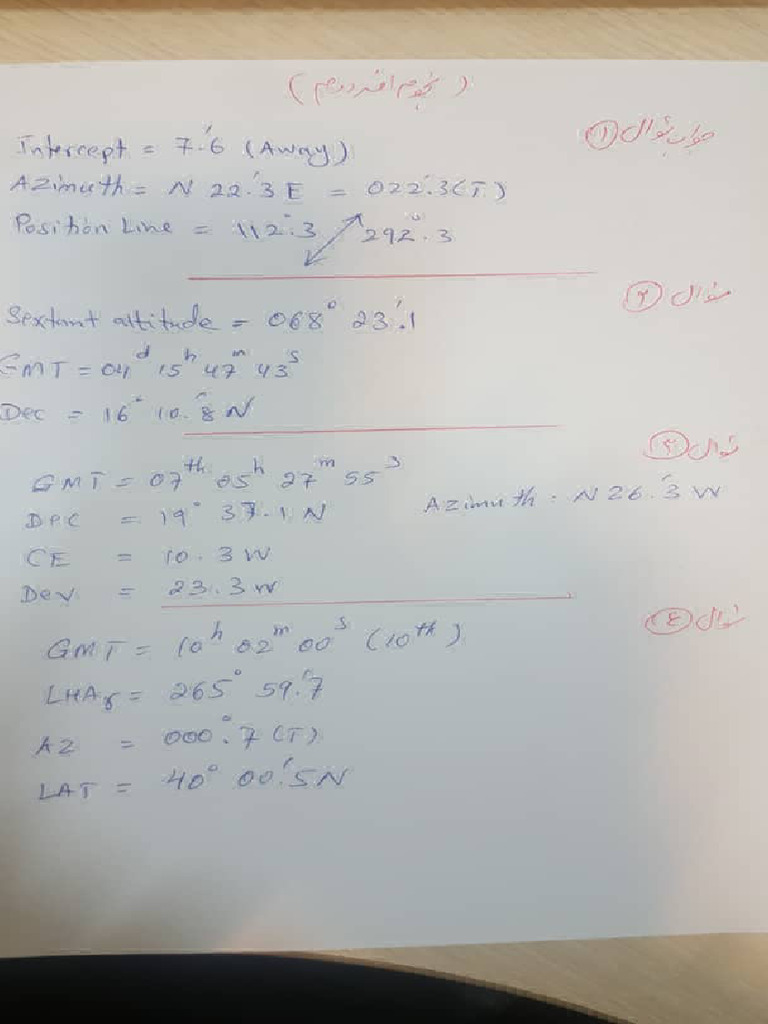 (نجوم افسر دوم)
جواب سوال ①
Intercept = 7.'6 (Away)
Azimuth = N 22.°3 E = 022.°3 (T)
Position Line = 112.°3 ↗↙ 292.°3
سوال ②
Sextant altitude = 068° 23.'1
GMT = 04ᵈ 15ʰ 47ᵐ 43ˢ
Dec = 16° 10.'8 N
سوال ③
GMT = 07ᵗʰ 05ʰ 27ᵐ 55ˢ
Dec = 19° 37.1 N Azimuth = N 26.°3 W
CE = 10.3 W
Dev = 23.3 W
سوال ④
GMT = 10ʰ 02ᵐ 00ˢ (10ᵗʰ)
LHAɣ = 265° 59.'7
AZ = 000.°7 (T)
LAT = 40° 00.'5 N